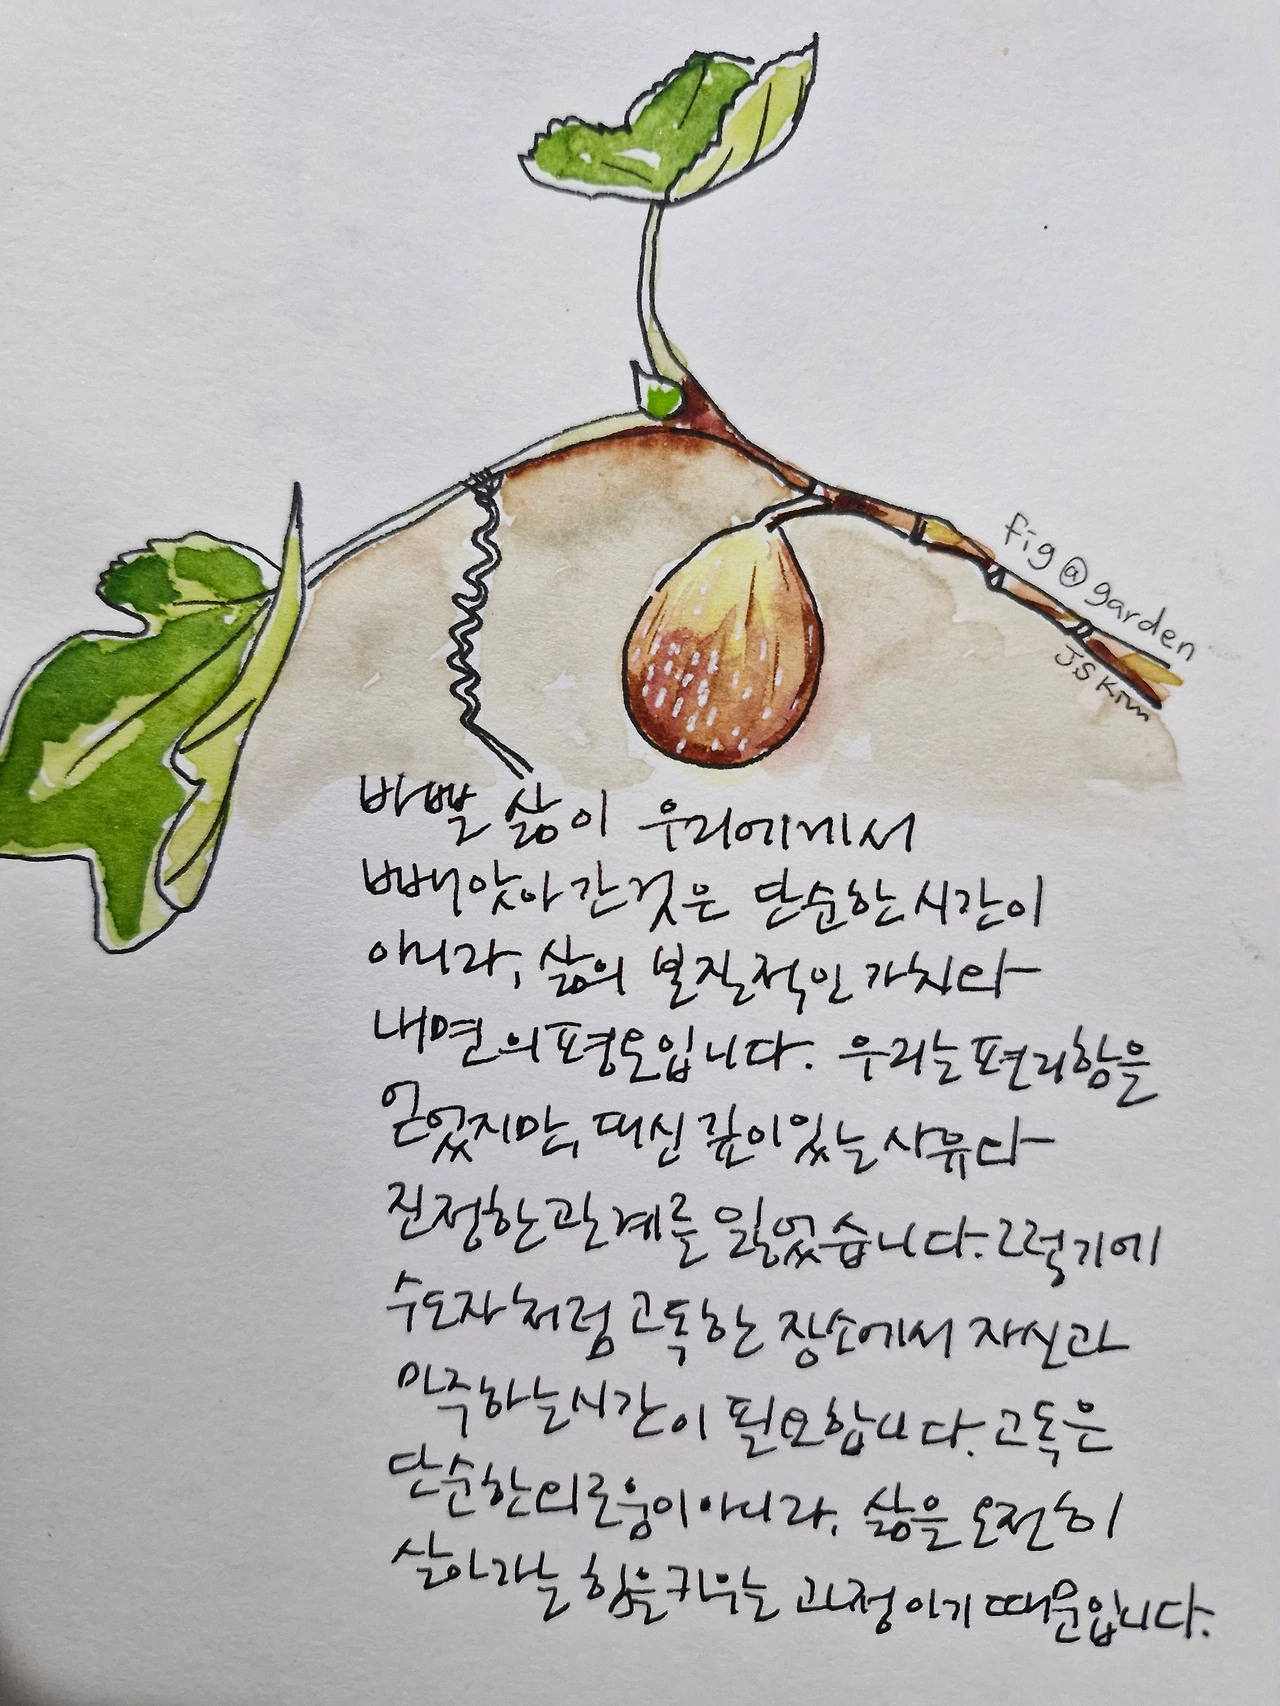 fig @ garden
J.S Kim
바쁜 삶이 우리에게서
빼앗아 간 것은 단순한 시간이
아니라, 삶의 본질적인 가치와
내면의 평온입니다. 우리는 편리함을
얻었지만, 대신 깊이있는 사유와
진정한 관계를 잃었습니다. 그렇기에
수도자처럼 고독한 장소에서 자신과
마주하는 시간이 필요합니다. 고독은
단순한 외로움이 아니라, 삶을 온전히
살아가는 힘을 키우는 과정이기 때문입니다.